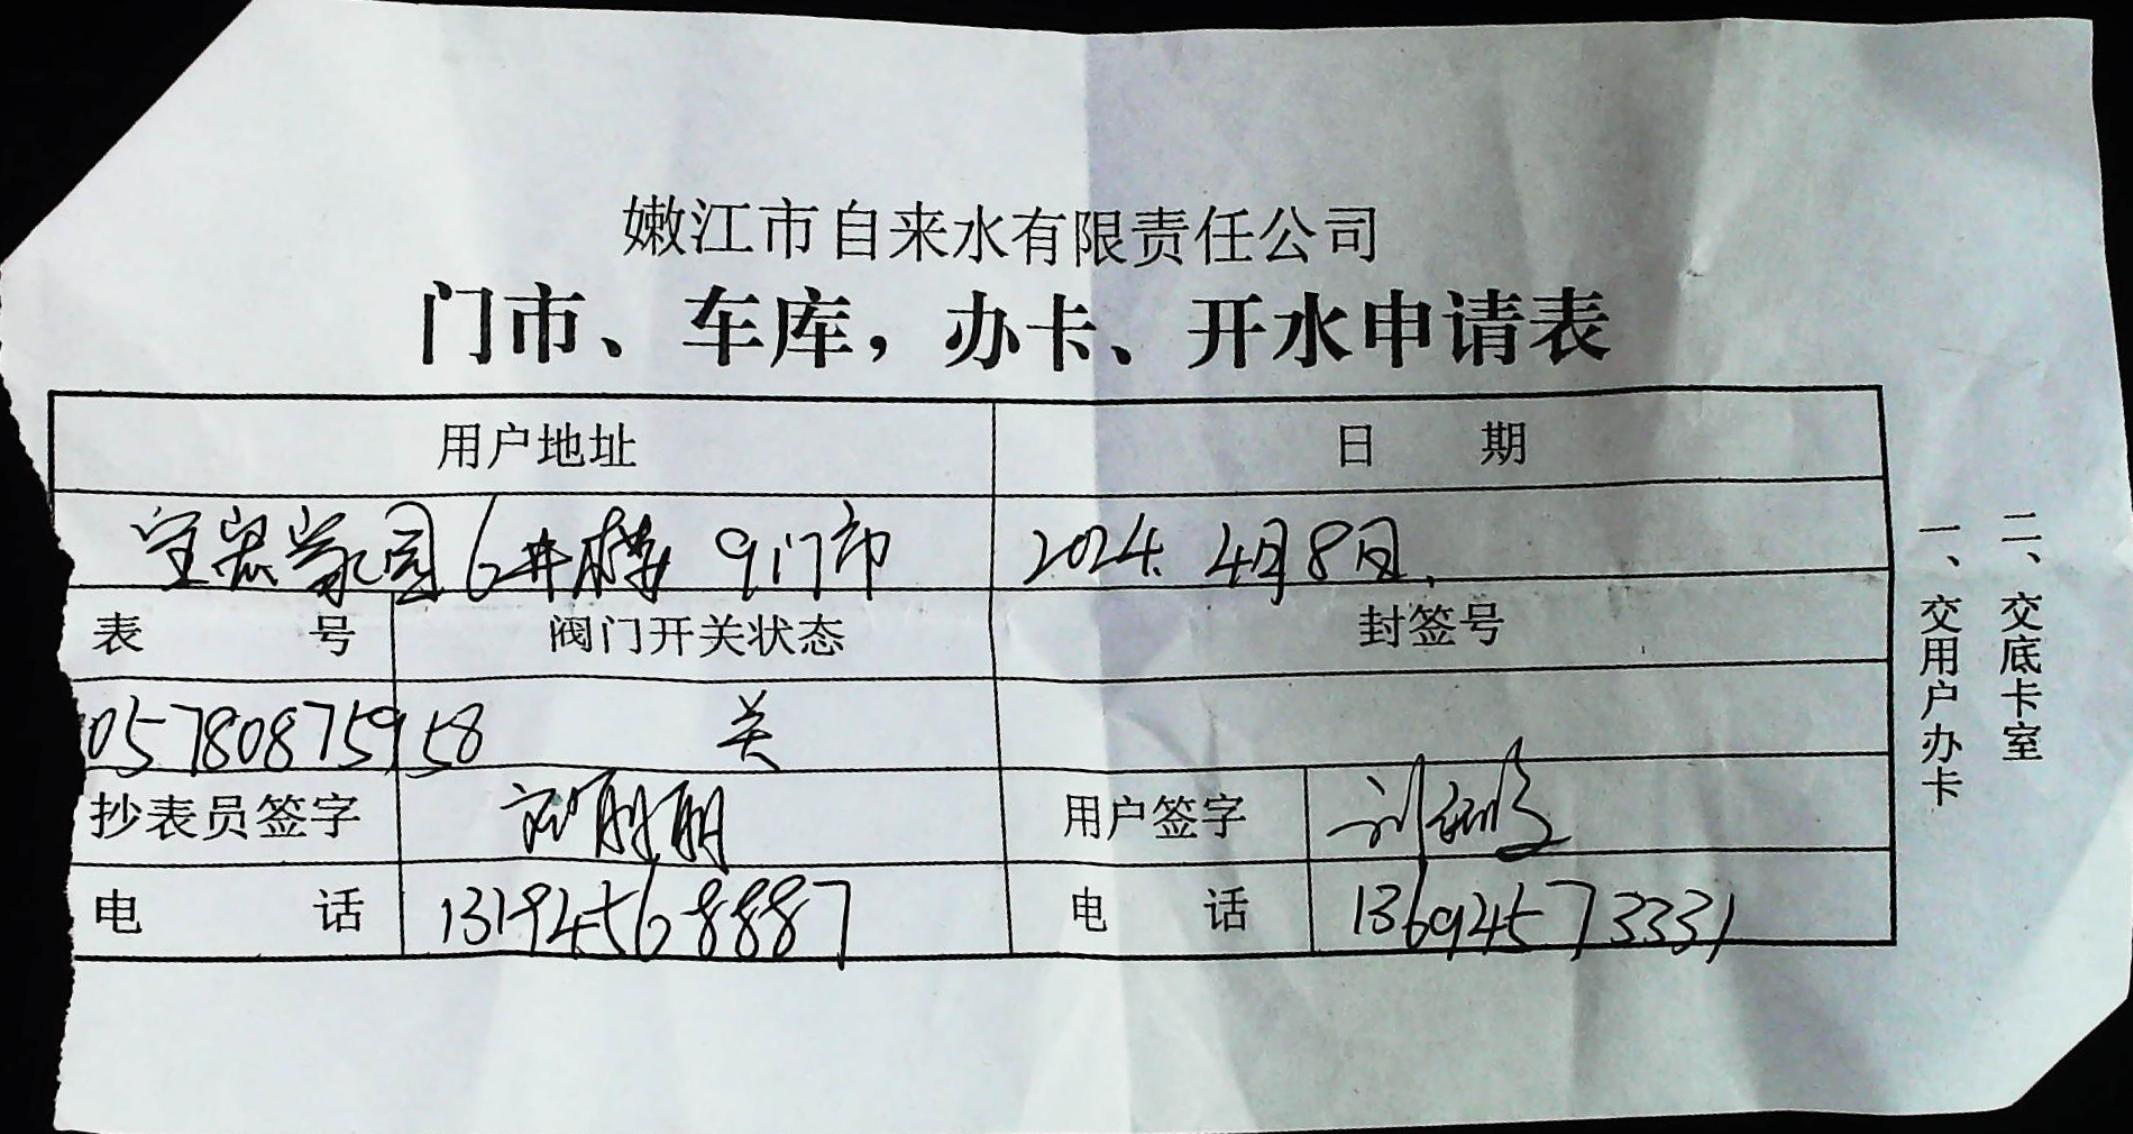 嫩江市自来水有限责任公司
门市、车库，办卡、开水申请表
用户地址 日 期
宝宸家园6井楼 9门市 2024. 4月8日.
表 号 阀门开关状态 封签号
05780875958 关
抄表员签字 用户签字 刘
电 话 13194568887 电 话 13694573331
一、交用户办卡
二、交底卡室